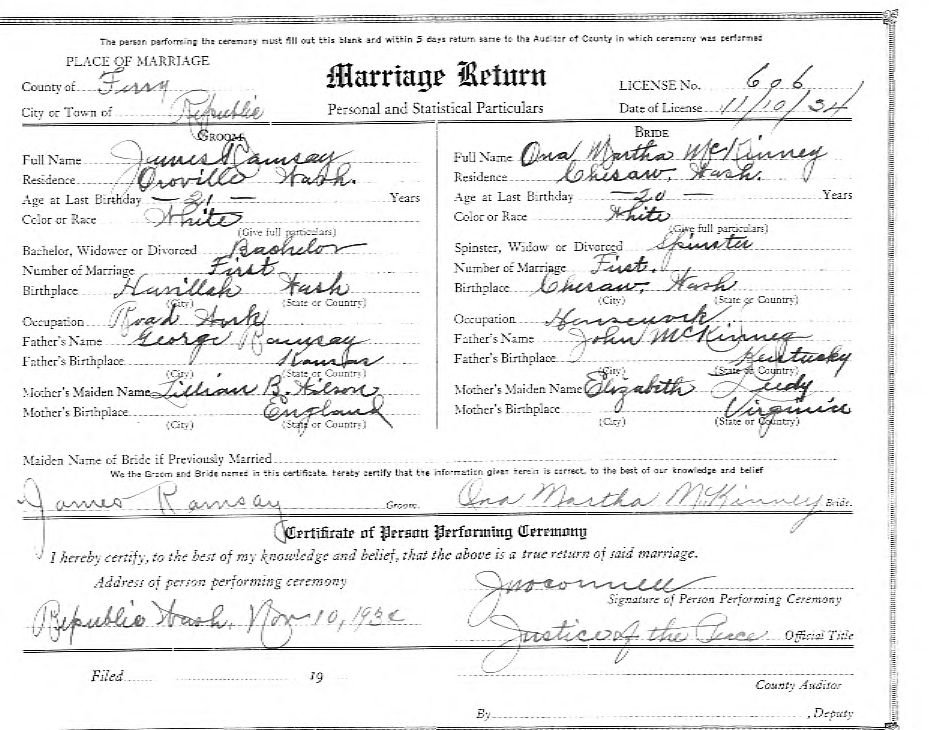 The person performing the ceremony must fill out this blank and within 5 days return same to the Auditor of County in which ceremony was performed
PLACE OF MARRIAGE
County of Ferry
City or Town of Republic
Marriage Return
Personal and Statistical Particulars
LICENSE No. 606
Date of License 11/10/34
GROOM
Full Name James Ramsay
Residence Oroville Wash.
Age at Last Birthday — 21 — Years
Color or Race White
(Give full particulars)
Bachelor, Widower or Divorced Bachelor
Number of Marriage First
Birthplace Havillah Wash
(City) (State or Country)
Occupation Road Work
Father's Name George Ramsay
Father's Birthplace Kansas
(City) (State or Country)
Mother's Maiden Name Lillian B. Wilson
Mother's Birthplace England
(City) (State or Country)
BRIDE
Full Name Ona Martha McKinney
Residence Chesaw, Wash.
Age at Last Birthday — 20 — Years
Color or Race White
(Give full particulars)
Spinster, Widow or Divorced Spinster
Number of Marriage First.
Birthplace Chesaw, Wash
(City) (State or Country)
Occupation Housework
Father's Name John McKinney
Father's Birthplace Kentucky
(City) (State or Country)
Mother's Maiden Name Elizabeth
Mother's Birthplace Virginia
(City) (State or Country)
Maiden Name of Bride if Previously Married
We the Groom and Bride named in this certificate, hereby certify that the information given herein is correct, to the best of our knowledge and belief
James Ramsay Groom. Ona Martha McKinney Bride.
Certificate of Person Performing Ceremony
I hereby certify, to the best of my knowledge and belief, that the above is a true return of said marriage.
Address of person performing ceremony
Republic Wash. Nov 10, 1934
Signature of Person Performing Ceremony
Justice of the Peace Official Title
Filed 19
County Auditor
By , Deputy